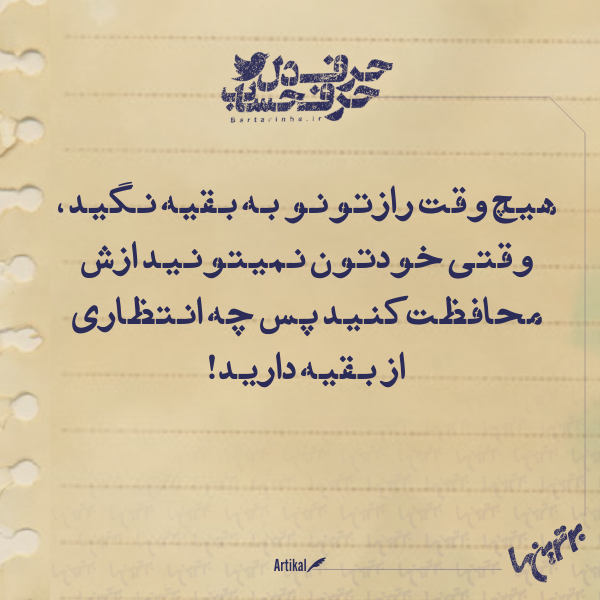 حرف دل
حرف حساب
Bartarinha.ir
هیچ وقت رازتونو به بقیه نگید،
وقتی خودتون نمیتونید ازش
محافظت کنید پس چه انتظاری
از بقیه دارید!
برترین‌ها
Artikal